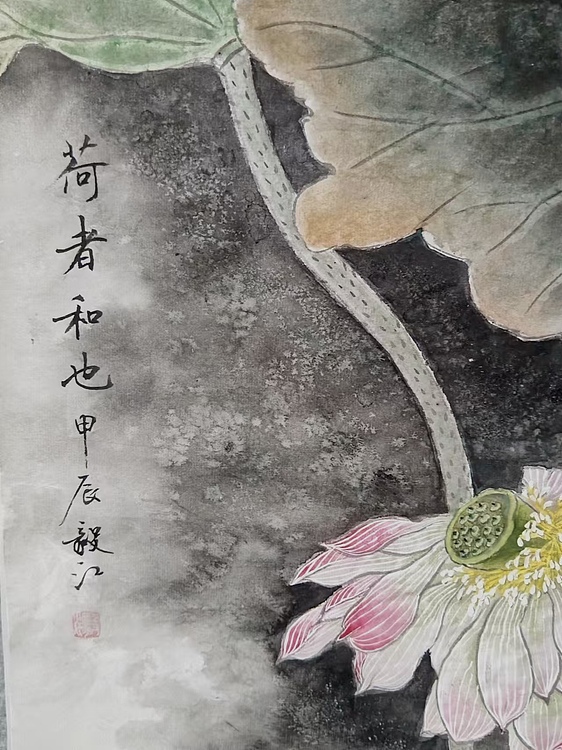 荷者和也甲辰毅江